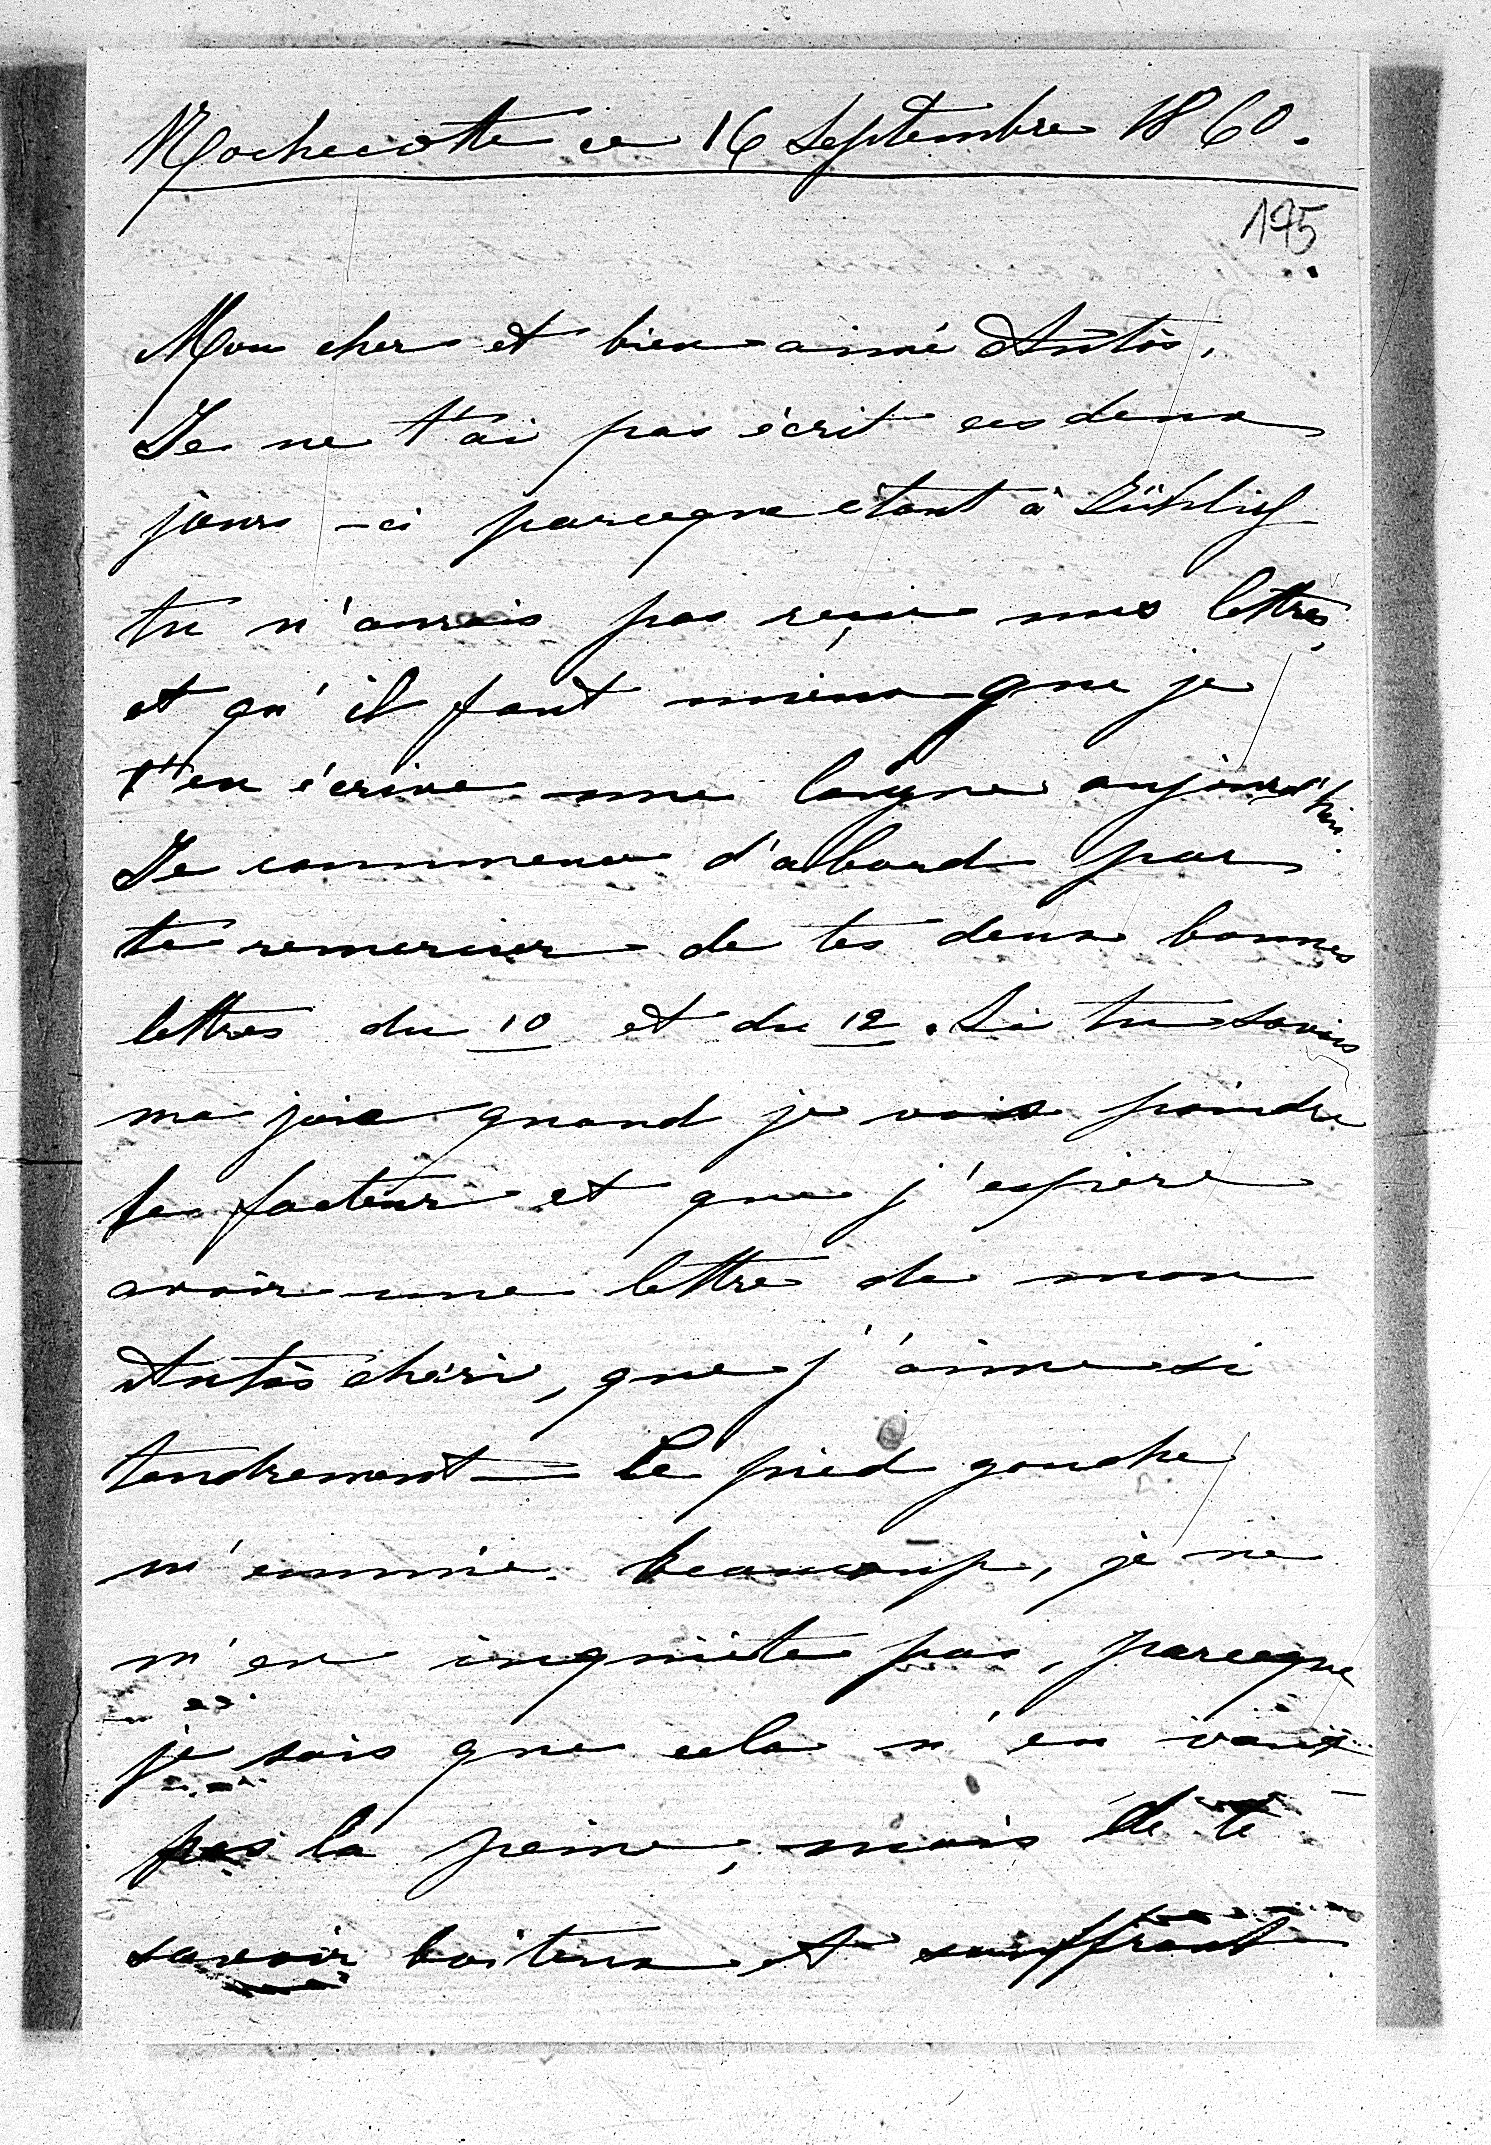 Rochecotte ce 16 Septembre 1860.
195
Mon cher et bien aimé Antòs,
Je ne t'ai pas écrit ces deux
jours-ci parceque étant à
tu n'aurais pas reçu mes lettres,
et qu'il faut mieux que je
t'en écrive une longue aujourd'hui.
Je commence d'abord par
te remercier de tes deux bonnes
lettres du 10 et du 12. Si tu savais
ma joie quand je vois poindre
le facteur et que j'espère
avoir une lettre de mon
Antòs chéri, que j'aime si
tendrement — Le pied gauche
m'ennuie beaucoup, je ne
m'en inquiète pas, parceque
je sais que cela n'en vaut
pas la peine, mais de te
savoir boiteux et souffrant